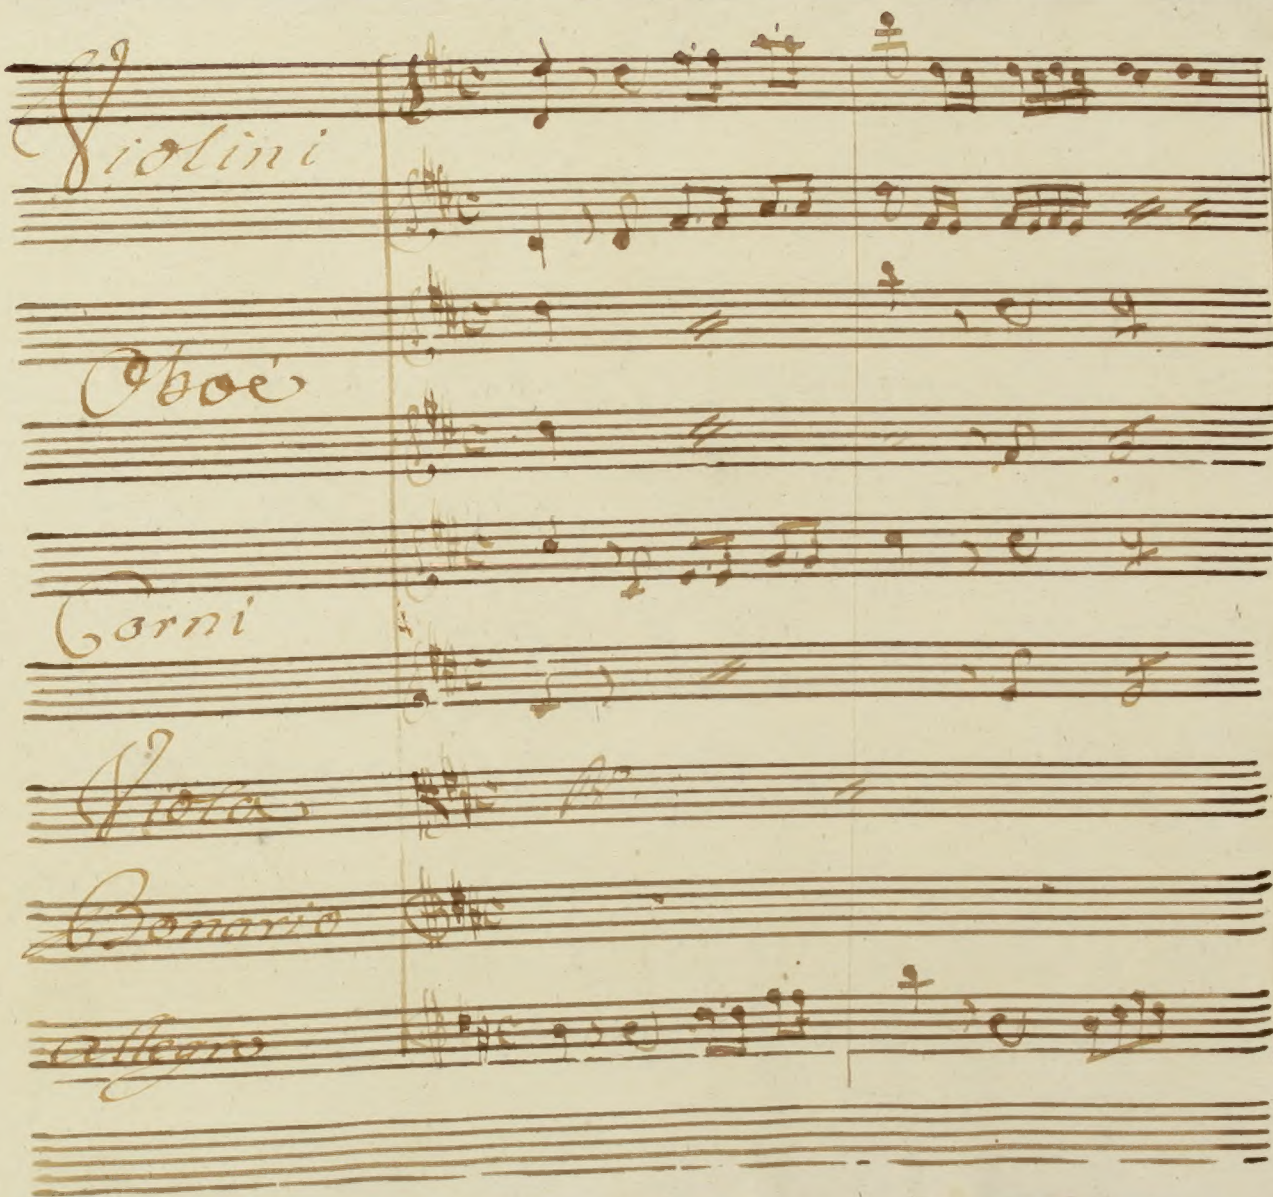 Violini
Oboè
Corni
Viola
Bonario
allegro